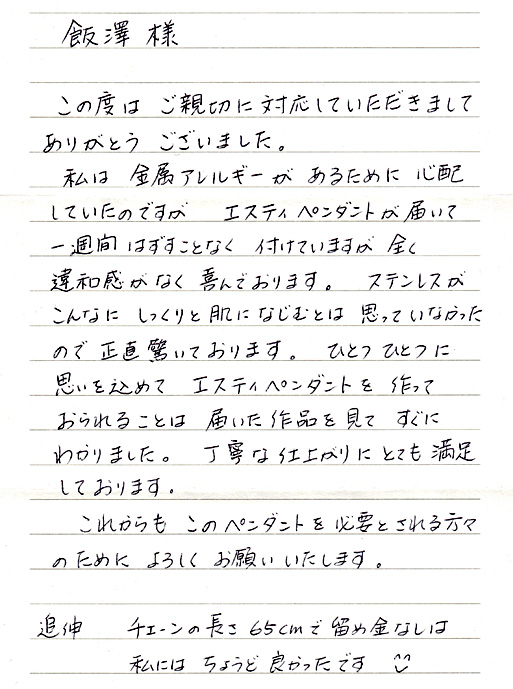 飯澤 様
この度は ご親切に対応していただきまして
ありがとう ございました。
私は 金属アレルギーが あるために 心配
していたのですが エスティペンダントが届いて
一週間はずすことなく 付けていますが 全く
違和感がなく 喜んでおります。 ステンレスが
こんなに しっくりと肌になじむとは 思っていなかった
ので 正直驚いております。 ひとつひとつに
思いを込めて エスティペンダントを 作って
おられることは 届いた作品を見て すぐに
わかりました。 丁寧な仕上がりに とても満足
しております。
これからも このペンダントを必要とされる方々
のために よろしく お願いいたします。
追伸 チェーンの長さ 65cmで 留め金なしは
私には ちょうど良かったです ^^